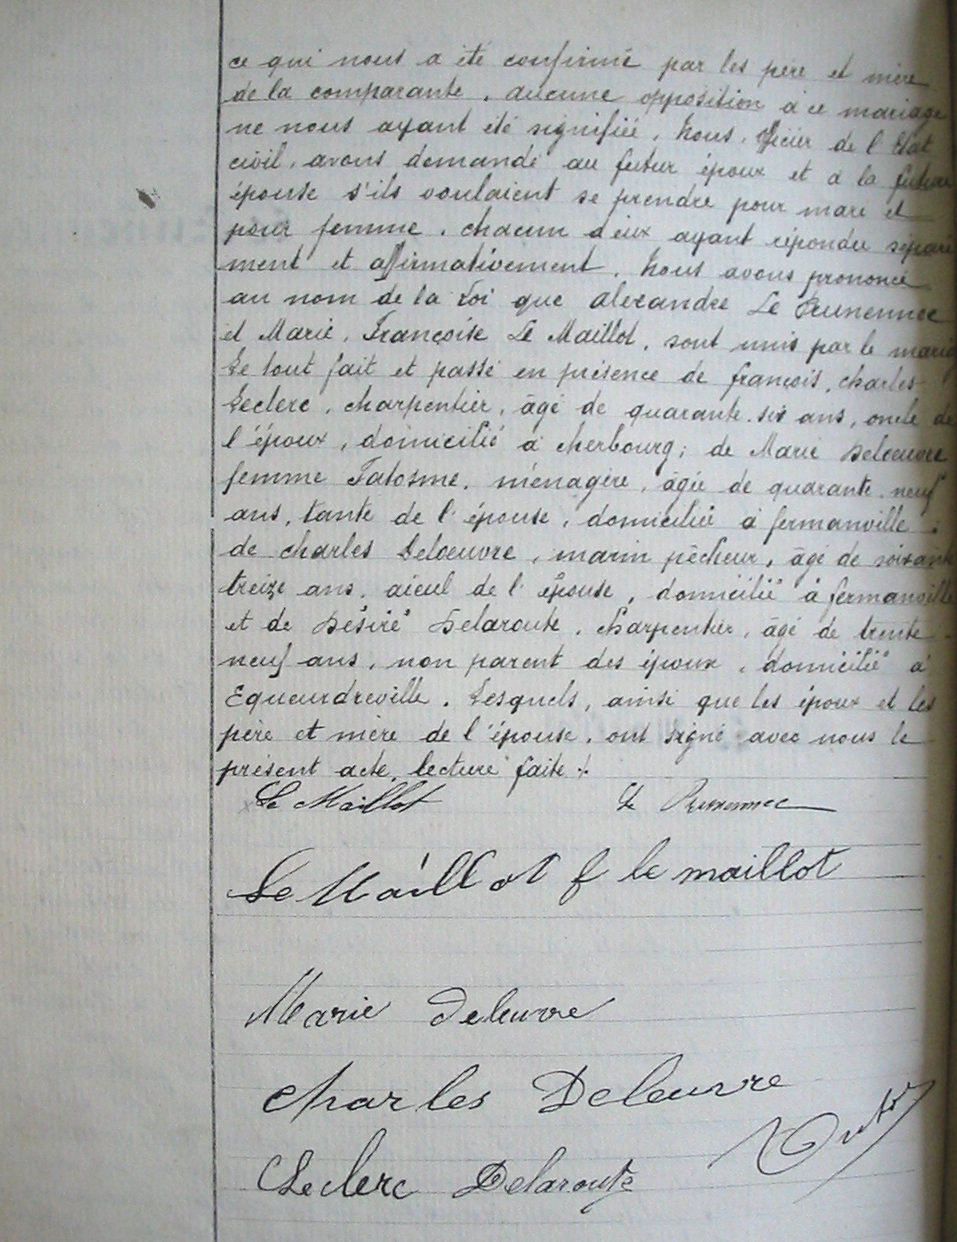 ce qui nous a été confirmé par les père et mère
de la comparante. aucune opposition à ce mariage
ne nous ayant été signifiée, Nous, officier de l'Etat
civil, avons demandé au futur époux et à la future
épouse s'ils voulaient se prendre pour mari et
pour femme, chacun d'eux ayant répondu séparé
ment et affirmativement, Nous avons prononcé
au nom de la Loi que Alexandre Le Prunennec
et Marie, Françoise Le Maillot, sont unis par le mariage
Le tout fait et passé en présence de françois, charles
Leclerc, charpentier, âgé de quarante-six ans, oncle de
l'époux, domicilié à Cherbourg; de Marie Deloeuvre
femme Fatosme, ménagère, âgée de quarante-neuf
ans, tante de l'épouse, domiciliée à fermanville;
de charles Deloeuvre, marin pêcheur, âgé de soixante
treize ans, aïeul de l'épouse, domicilié à fermanville
et de Désiré Delaroute, charpentier, âgé de trente-
neuf ans, non parent des époux, domicilié à
Equeurdreville. Lesquels, ainsi que les époux et les
père et mère de l'épouse, ont signé avec nous le
présent acte, lecture faite./.
Le Maillot Le Prunennec
Le Maillot f le maillot
Marie Deleuvre
Charles Deleuvre
Leclerc Delaroute